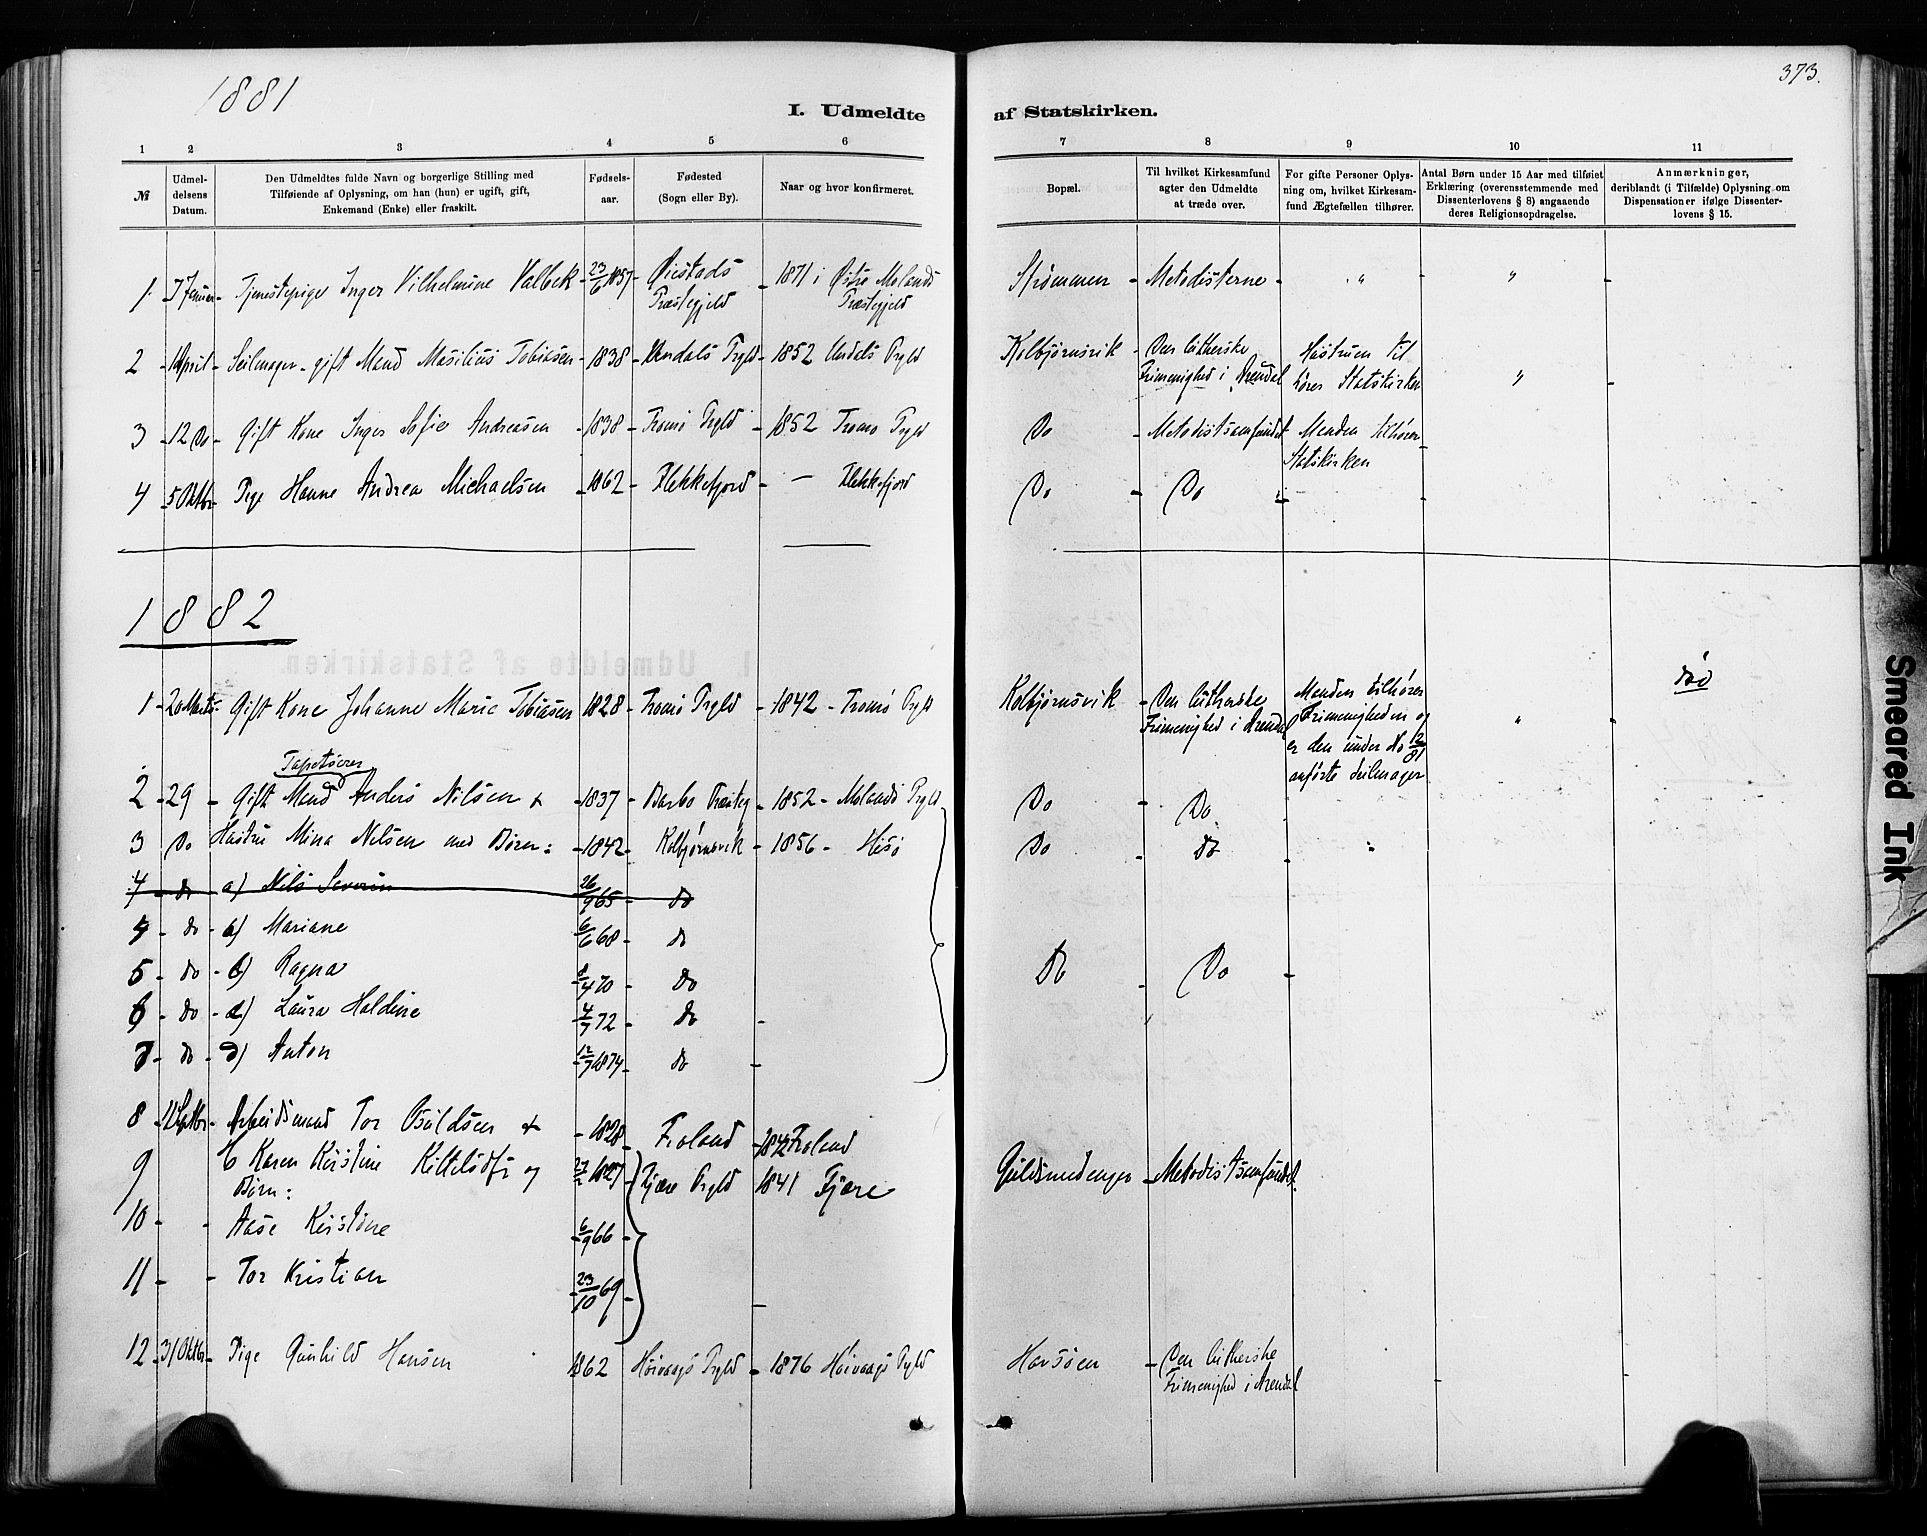 1881
373.
I. Udmeldte af Statskirken.
1 2 3 4 5 6 7 8 9 10 11
№
Udmel-
delsens
Datum.
Den Udmeldtes fulde Navn og borgerlige Stilling med
Tilføiende af Oplysning, om han (hun) er ugift, gift,
Enkemand (Enke) eller fraskilt.
Fødsels-
aar.
Fødested
(Sogn eller By).
Naar og hvor konfirmeret.
Bopæl.
Til hvilket Kirkesamfund
agter den Udmeldte
at træde over.
For gifte Personer Oplys-
ning om, hvilket Kirkesam-
fund Ægtefællen tilhører.
Antal Børn under 15 Aar med tilføiet
Erklæring (overensstemmende med
Dissenterlovens § 8) angaaende
deres Religionsopdragelse.
Anmærkninger,
deriblandt (i Tilfælde) Oplysning om
Dispensationer ifølge Dissenter-
lovens § 15.
1. Tjenestepige Inger Vilhelmine Valbek 23/6 1857 Øiestads 1871 i Østre Molands Strømmen Metodisterne
Præstegjeld Præstegjeld
2 1 April Seilmager gift Mand Masilius Tobiasen 1838 Undals Pgld 1852 Undals Pgld Kolbjørnsvik Den lutherske Hustruen til
Frimenighed i Arendal hører Statskirken
3 12 Do Gift Kone Inger Sofie Andreasen 1838 Tromø Pgld 1852 Tromø Pgld Do Metodistsamfundet Manden tilhører
Statskirken
4 5 Oktbr Pige Hanne Andrea Michaelsen 1862 Flekkefjord — Flekkefjord Do Do
1882
død
1 20 Marts Gift Kone Johanne Marie Tobiasen 1828 Tromø Pgld 1842 Tromø Pgld Kolbjørnsvik Den lutherske Manden tilhører
Frimenighed i Arendal Frimenigheden og
er den under No 2/81
anførte Seilmager
Tapetserer
2 29 Gift Mand Anders Nilsen + 1837 Barbo Præsteg 1852 Molands Pgld Do Do
3 Do Hustru Mina Nilsen med Børn: 1842 Kolbjørnsvik 1856 Hisø Do do
4 do a) Nils Severin 26/9 65 do
4 do a) Mariane 6/6 68 do
5 do b) Ragna 8/4 70 do Do Do
6 do c) Laura Haldine 4/7 72 do
7 do d) Anton 12/7 1874 do
8 Arbeidsmand Tor Osuldsen + 1828 Froland 1842 Froland
9 H Karen Kirstine Kittelsdtr og 1827 Fjære Pgld 1841 Fjære Guldsmedengen Metodistsamfundet.
Børn:
10 Aase Kirstine 6/9 66
11 Tor Kristian 23/10 69
12 31 Oktbr Pige Gunhild Hansen 1862 Høivaags Pgld 1876 Høivaags Pgld Havsøen Den lutherske
Frimenighed i Arendal
Smeared Ink